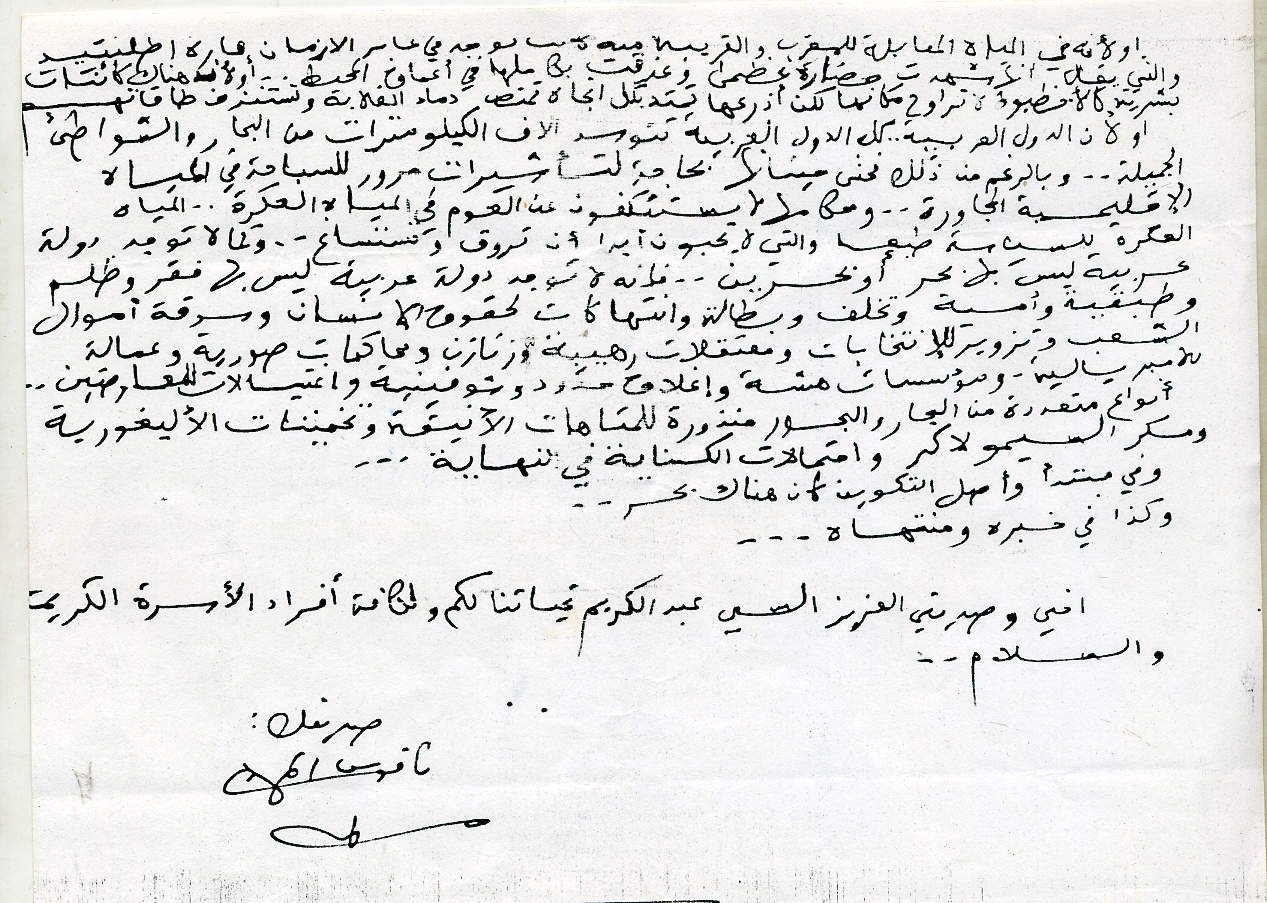 أو لأنه في المياه المقابلة للمغرب والقريبة منه كانت توجد في غابر الأزمان قارة اطلنتيد
والتي يقال أنها شهدت حضارة عظمى وغرقت بكاملها في أعماق المحيط .. أو لأنه هناك كائنات
بشرية كالأخطبوط لا تراوح مكانها لكن أذرعها تمتد بكل اتجاه تمتص دماء الغلابة وتستنزف طاقاتهم
أو لأن الدول العربية .. كل الدول العربية تتوسد الاف الكيلومترات من البحار والشواطئ
الجميلة .. وبالرغم من ذلك فحتى حيتانها بحاجة لتأشيرات مرور للسباحة في المياه
الإقليمية المجاورة .. وحكامها لا يستنكفون عن العوم في المياه العكرة .. المياه
العكرة للسياسة طبعا والتي لا يحبون أبدا أن تروق و .. وكما لا توجد دولة
عربية ليس بها بحر أو بحرين .. فإنه لا توجد دولة عربية ليس بها فقر وظلم
وطبقية وأمية وتخلف وبطالة وانتهاكات لحقوق الانسان وسرقة أموال
الشعب وتزوير للإنتخابات ومعتقلات رهيبة وزنازن ومحاكمات صورية وعمالة
للامبريالية .. ومؤسسات هشة وإغلاق حدود وشوفينية واغتيالات للمعارضين ..
أنواع متعددة من البحار والبحور منذورة للمتاهات الأنيقة وتخمينات الأليغورية
ومكر السيمولاكر واحتمالات الكناية في النهاية ...
وفي مبتدأ وأصل التكوين كان هناك بحر ..
وكذا في خبره ومنتهاه ...
اخي وصديقي العزيز السي عبد الكريم تحياتنا لكم ولكافة أفراد الأسرة الكريمة
والسلام ..
صديقك :